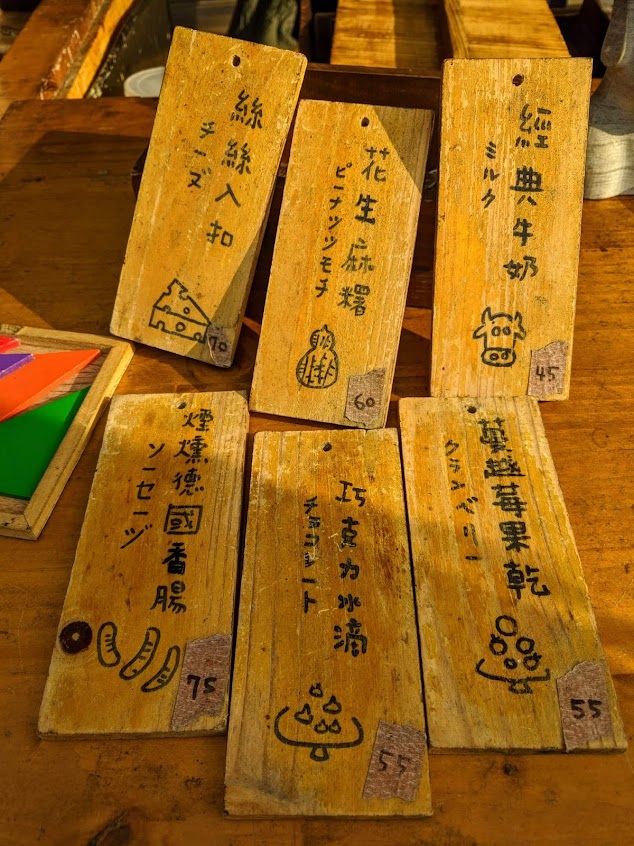 絲絲入扣
チーズ
70
花生麻糬
ピーナッツモチ
60
經典牛奶
ミルク
45
煙燻德國香腸
ソーセージ
75
巧克力冰滴
チョコレート
55
蔓越莓果乾
クランベリー
55